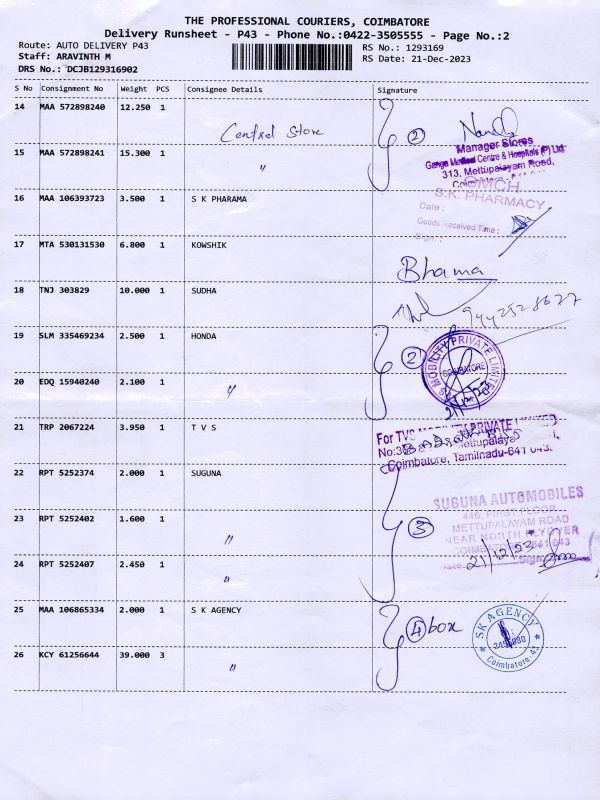 THE PROFESSIONAL COURIERS, COIMBATORE
Delivery Runsheet - P43 - Phone No.:0422-3505555 - Page No.:2
Route: AUTO DELIVERY P43
Staff: ARAVINTH M
DRS No.: DCJB129316902
RS No.: 1293169
RS Date: 21-Dec-2023
S No Consignment No Weight PCS Consignee Details Signature
14 MAA 572898240 12.250 1 Central Store 2
15 MAA 572898241 15.300 1 "
Manager Stores
Ganga Medical Centre & Hospitals (P) Ltd
313, Mettupalayam Road,
16 MAA 106393723 3.500 1 S K PHARAMA
GMCH
S.K. PHARMACY
Date :
Goods Received Time :
Sign :
17 MTA 530131530 6.800 1 KOWSHIK Bhama
18 TNJ 303829 10.000 1 SUDHA 9442528627
19 SLM 335469234 2.500 1 HONDA 2
MOBILITY PRIVATE LIMITED
COIMBATORE
20 EDQ 15940240 2.100 1 "
21 TRP 2067224 3.950 1 T V S
For TVS MOBILITY PRIVATE LIMITED
Coimbatore, Tamilnadu-641 043.
22 RPT 5252374 2.000 1 SUGUNA
SUGUNA AUTOMOBILES
446, FIRST FLOOR
METTUPALAYAM ROAD
NEAR NORTH FLYOVER
COIMBATORE 641 043
21/12/23
23 RPT 5252402 1.600 1 " 3
24 RPT 5252407 2.450 1 "
25 MAA 106865334 2.000 1 S K AGENCY 4 box
SK AGENCY
Coimbatore-43
26 KCY 61256644 39.000 3 "